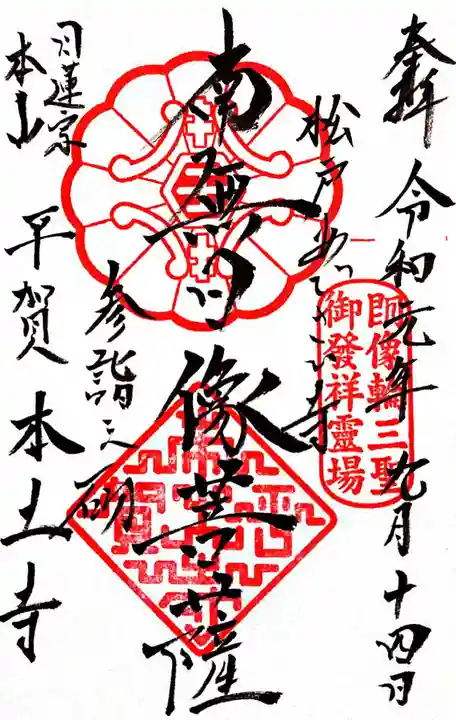 奉拝 令和元年九月十四日
朗像輪三聖
御發祥靈場
松戸あじさい寺
南無日像菩薩
参詣之砌
日蓮宗
本山
平賀 本土寺